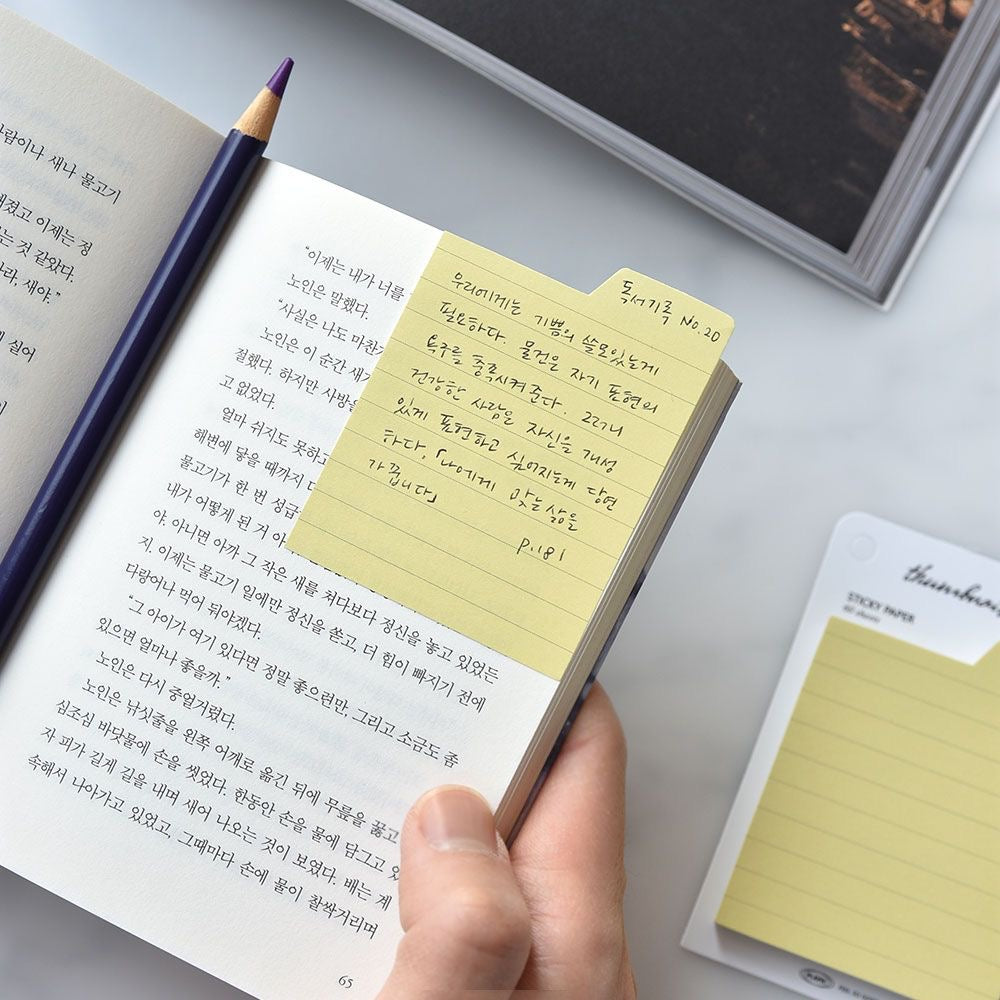 람이나 새나 물고기
해졌고 이제는 정
는 것 같았다.
라, 새야."
실어
"이제는 내가 너를
노인은 말했다.
"사실은 나도 마찬가
노인은 이 순간 새가
절했다. 하지만 사방을
고 없었다.
얼마 쉬지도 못하고
해변에 닿을 때까지
물고기가 한 번 성급
내가 어떻게 된 거
야. 아니면 아까 그 작은 새를 쳐다보다 정신을 놓고 있었든
지. 이제는 물고기 일에만 정신을 쏟고, 더 힘이 빠지기 전에
다랑어나 먹어 둬야겠다.
"그 아이가 여기 있다면 정말 좋으련만, 그리고 소금도 좀
있으면 얼마나 좋을까."
노인은 다시 중얼거렸다.
노인은 낚싯줄을 왼쪽 어깨로 옮긴 뒤에 무릎을 꿇고
심조심 바닷물에 손을 씻었다. 한동안 손을 물에 담그고 있
자 피가 길게 길을 내며 새어 나오는 것이 보였다. 배는 계
속해서 나아가고 있었고, 그때마다 손에 물이 찰싹거리며
65
독서기록 No.20
우리에게는 기쁨의 쓸모있는게
필요하다. 물건은 자기 표현의
욕구를 충족시켜 준다. 그러니
건강한 사람은 자신을 개성
있게 표현하고 싶어지는게 당연
하다.「나에게 맞는 삶을
가꿉니다」
p.181
STICKY PAPER
60 sheets